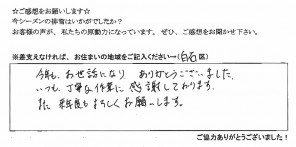 ☆ご感想をお願いします☆
今シーズンの排雪はいかがでしたか？
お客様の声が、私たちの原動力になっています。ぜひ、ご感想をお聞かせ下さい。
※差支えなければ、お住まいの地域をご記入ください→(白石区)
今年も、お世話になり ありがとうございました。
いつも、丁寧な作業に 感謝しております。
また 来年度もよろしく お願いします。
ご協力ありがとうございました！